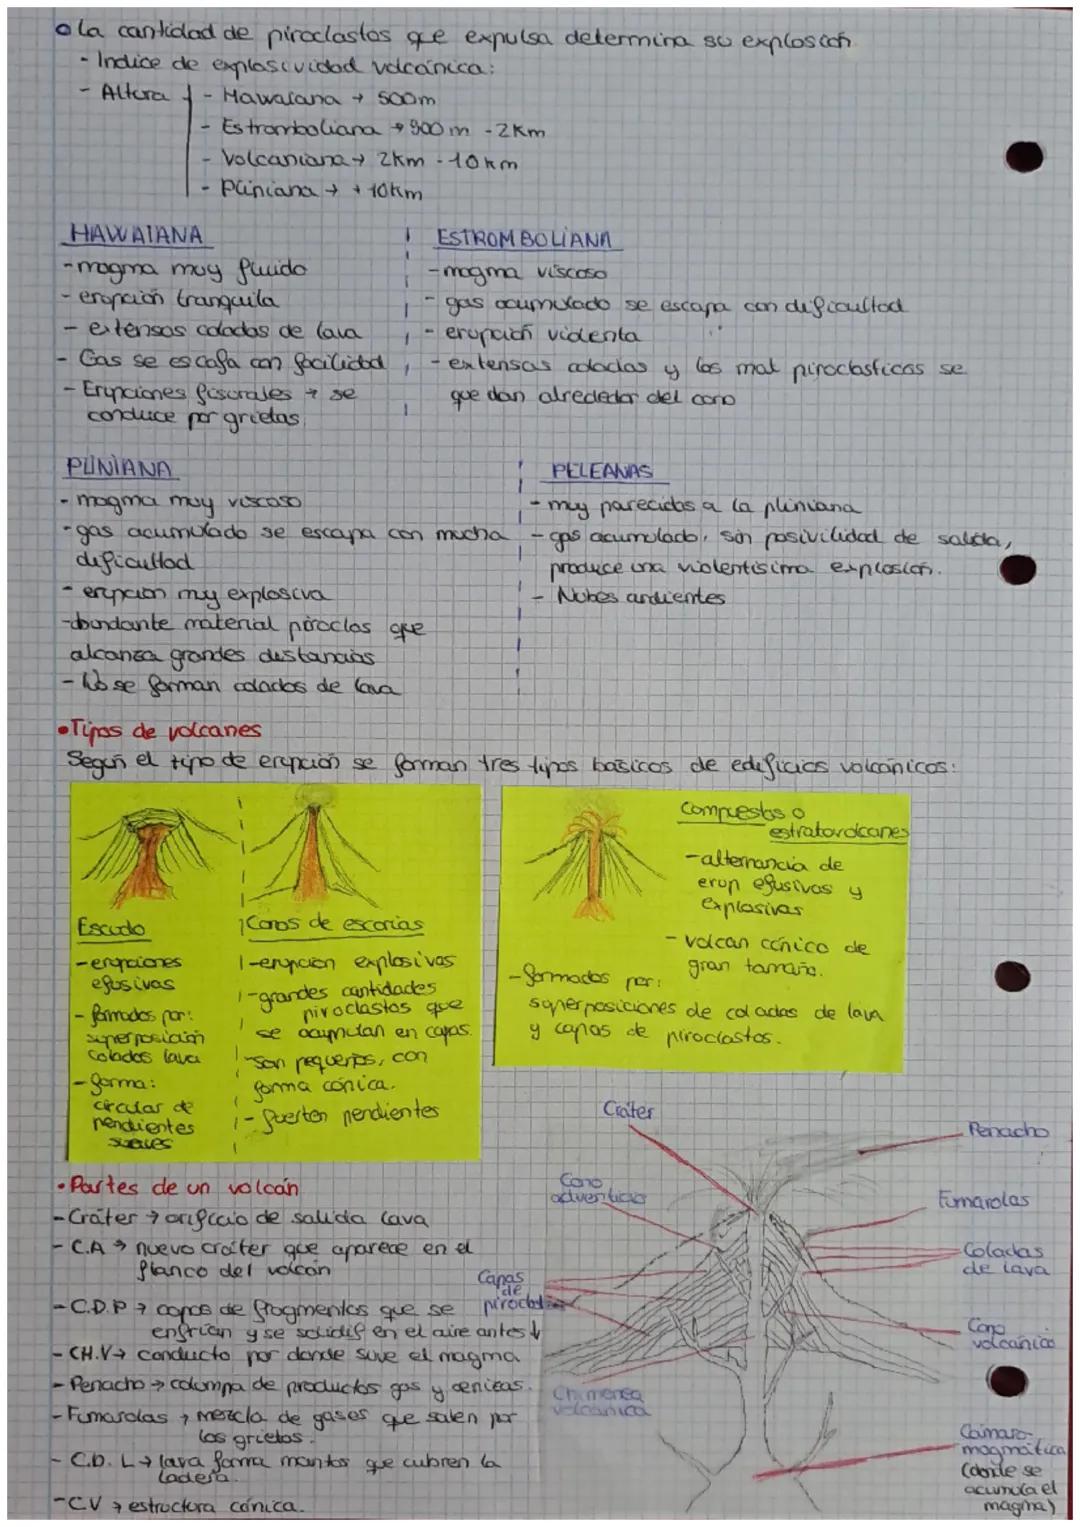 La cantidad de piroclastos que expulsa determina su explosión.
- Indice de explosividad volcánica:
- Altura
- Hawaiana → 500m
- Estromboliana → 900 m - 2Km
- Volcaniana → 2Km - 10 Km
- Pliniana → + 10Km
HAWAIANA
- magma muy fluido
- erupción tranquila
- extensas coladas de lava
- Gas se escapa con facilidad
- Erupciones fisurales → se
conduce por grietas.
ESTROMBOLIANA
- magma viscoso
- gas acumulado se escapa con dificultad
- erupción violenta
- extensas coladas y los mat piroclasticas se
que dan alrededor del cono
PLINIANA
- magma muy viscoso
- gas acumulado se escapa con mucha
dificultad
- erupción muy explosiva
- abundante material piroclas que
alcanza grandes distancias
- No se forman coladas de lava
PELEANAS
- muy parecidas a la pliniana
- gas acumulado, sin posivilidad de salida,
produce una violentisima explosión.
- Nubes ardientes
• Tipos de volcanes
Según el tipo de erupción se forman tres tipos básicos de edificios volcánicos:
Escudo
- erupciones
efusivas
- formados por:
superposición
coladas lava
- forma:
circular de
pendientes
suaves
Conos de escorias
- erupción explosivas
- grandes cantidades
piroclastos que
se acumulan en capas.
- son pequeños, con
forma cónica.
- fuertes pendientes
Compuestos o
estratovolcanes
- alternancia de
erup efusivas y
explosivas
- volcan cónico de
gran tamaño.
- formados por:
superposiciones de coladas de lava
y capas de piroclastos.
• Partes de un volcán
- Cráter → orificio de salida lava
- C.A → nuevo cráter que aparece en el
flanco del volcán
- C.D.P → capas de fragmentos que se
enfrían y se solidif en el aire antes ↓
- CH.V → conducto por donde suve el magma
- Penacho → columna de productos gas y cenizas.
- Fumarolas → mezcla de gases que salen por
las grietas.
- C.D. L → lava forma mantos que cubren la
ladera.
- CV → estructura cónica.
Cráter
Penacho
Cono
adventicio
Fumarolas
Coladas
de lava
Capas
de
Cono
volcánico
Chimenea
volcánica
Cámara
magmática
(donde se
acumula el
magma)